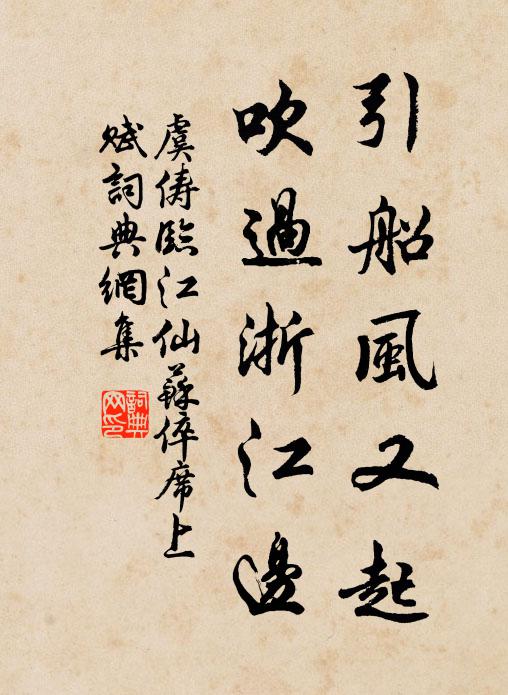 引船風又起
吹過浙江邊
虞儔臨江仙蘇倅席上
賦詞典網集
詞典網印